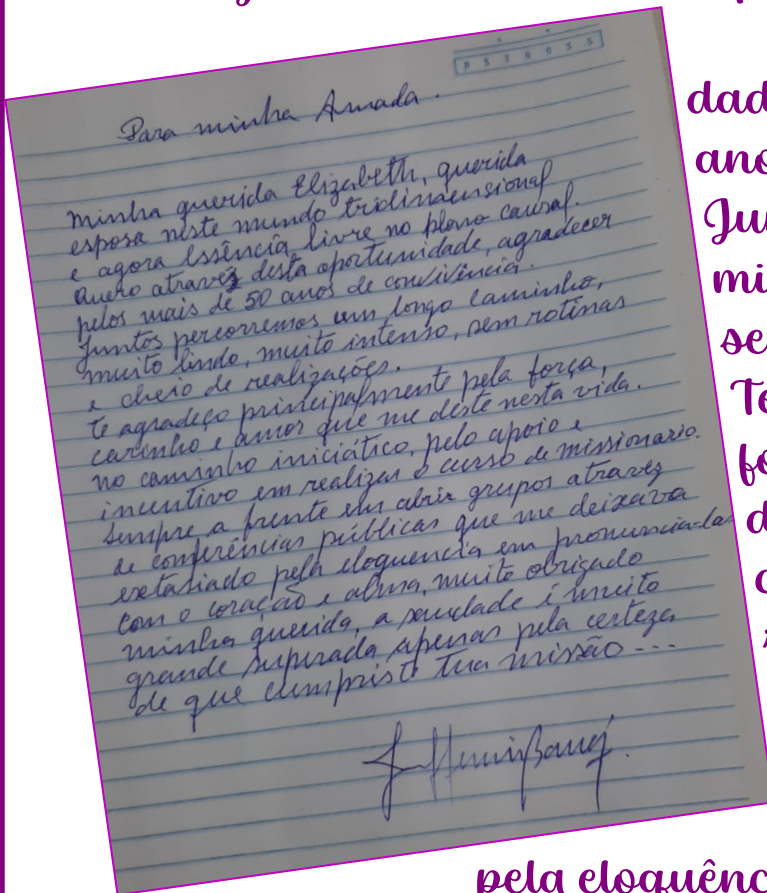 D S T Q Q S S
Para minha Amada.
minha querida Elizabeth, querida
esposa neste mundo tridimensional
e agora Essência livre no plano causal.
Quero atravez desta oportunidade, agradecer
pelos mais de 50 anos de convivência.
Juntos percorremos um longo caminho,
muito lindo, muito intenso, sem rotinas
e cheio de realizações.
te agradeço principalmente pela força,
carinho e amor que me deste nesta vida.
no caminho iniciático, pelo apoio e
incentivo em realizar o curso de missionario.
Sempre a frente em abrir grupos atravez
de conferências públicas que me deixava
extasiado pela eloquencia em pronuncia-las
com o coração e alma, muito obrigado
minha querida, a saudade é muito
grande superada apenas pela certeza
de que cumpriste tua missão ...
dad
ano
Ju
mi
se
Te
fo
d
c
pela eloquênc